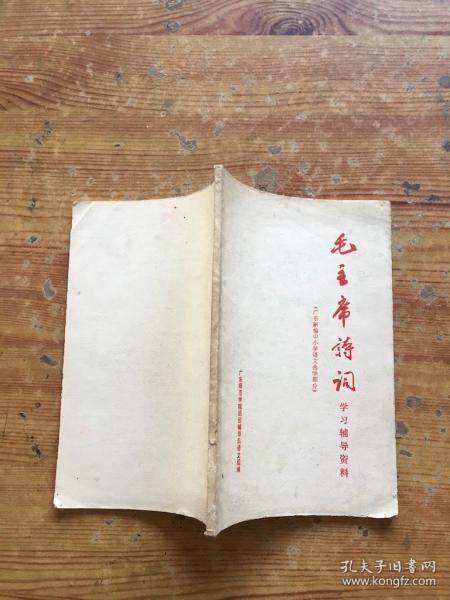 毛主席詩词
学习辅导资料
(广东新编中小学语文选学部分)
广东师范学院巡回辅导队语文组编
孔夫子旧书网
www.kongfz.com